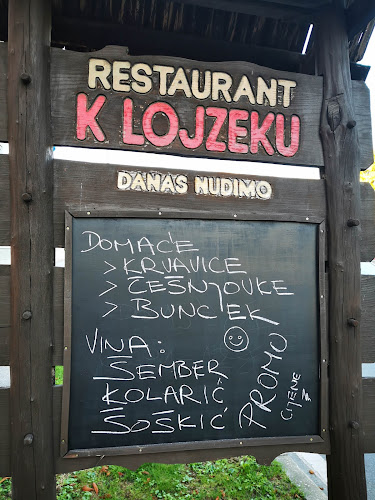 RESTAURANT
K LOJZEKU
DANAS NUDIMO
DOMAĆE
> KRVAVICE
> ČEŠNJOVKE
> BUNCEK
VINA:
ŠEMBER
KOLARIĆ
ŠOŠKIĆ
PROMO
CIJENE